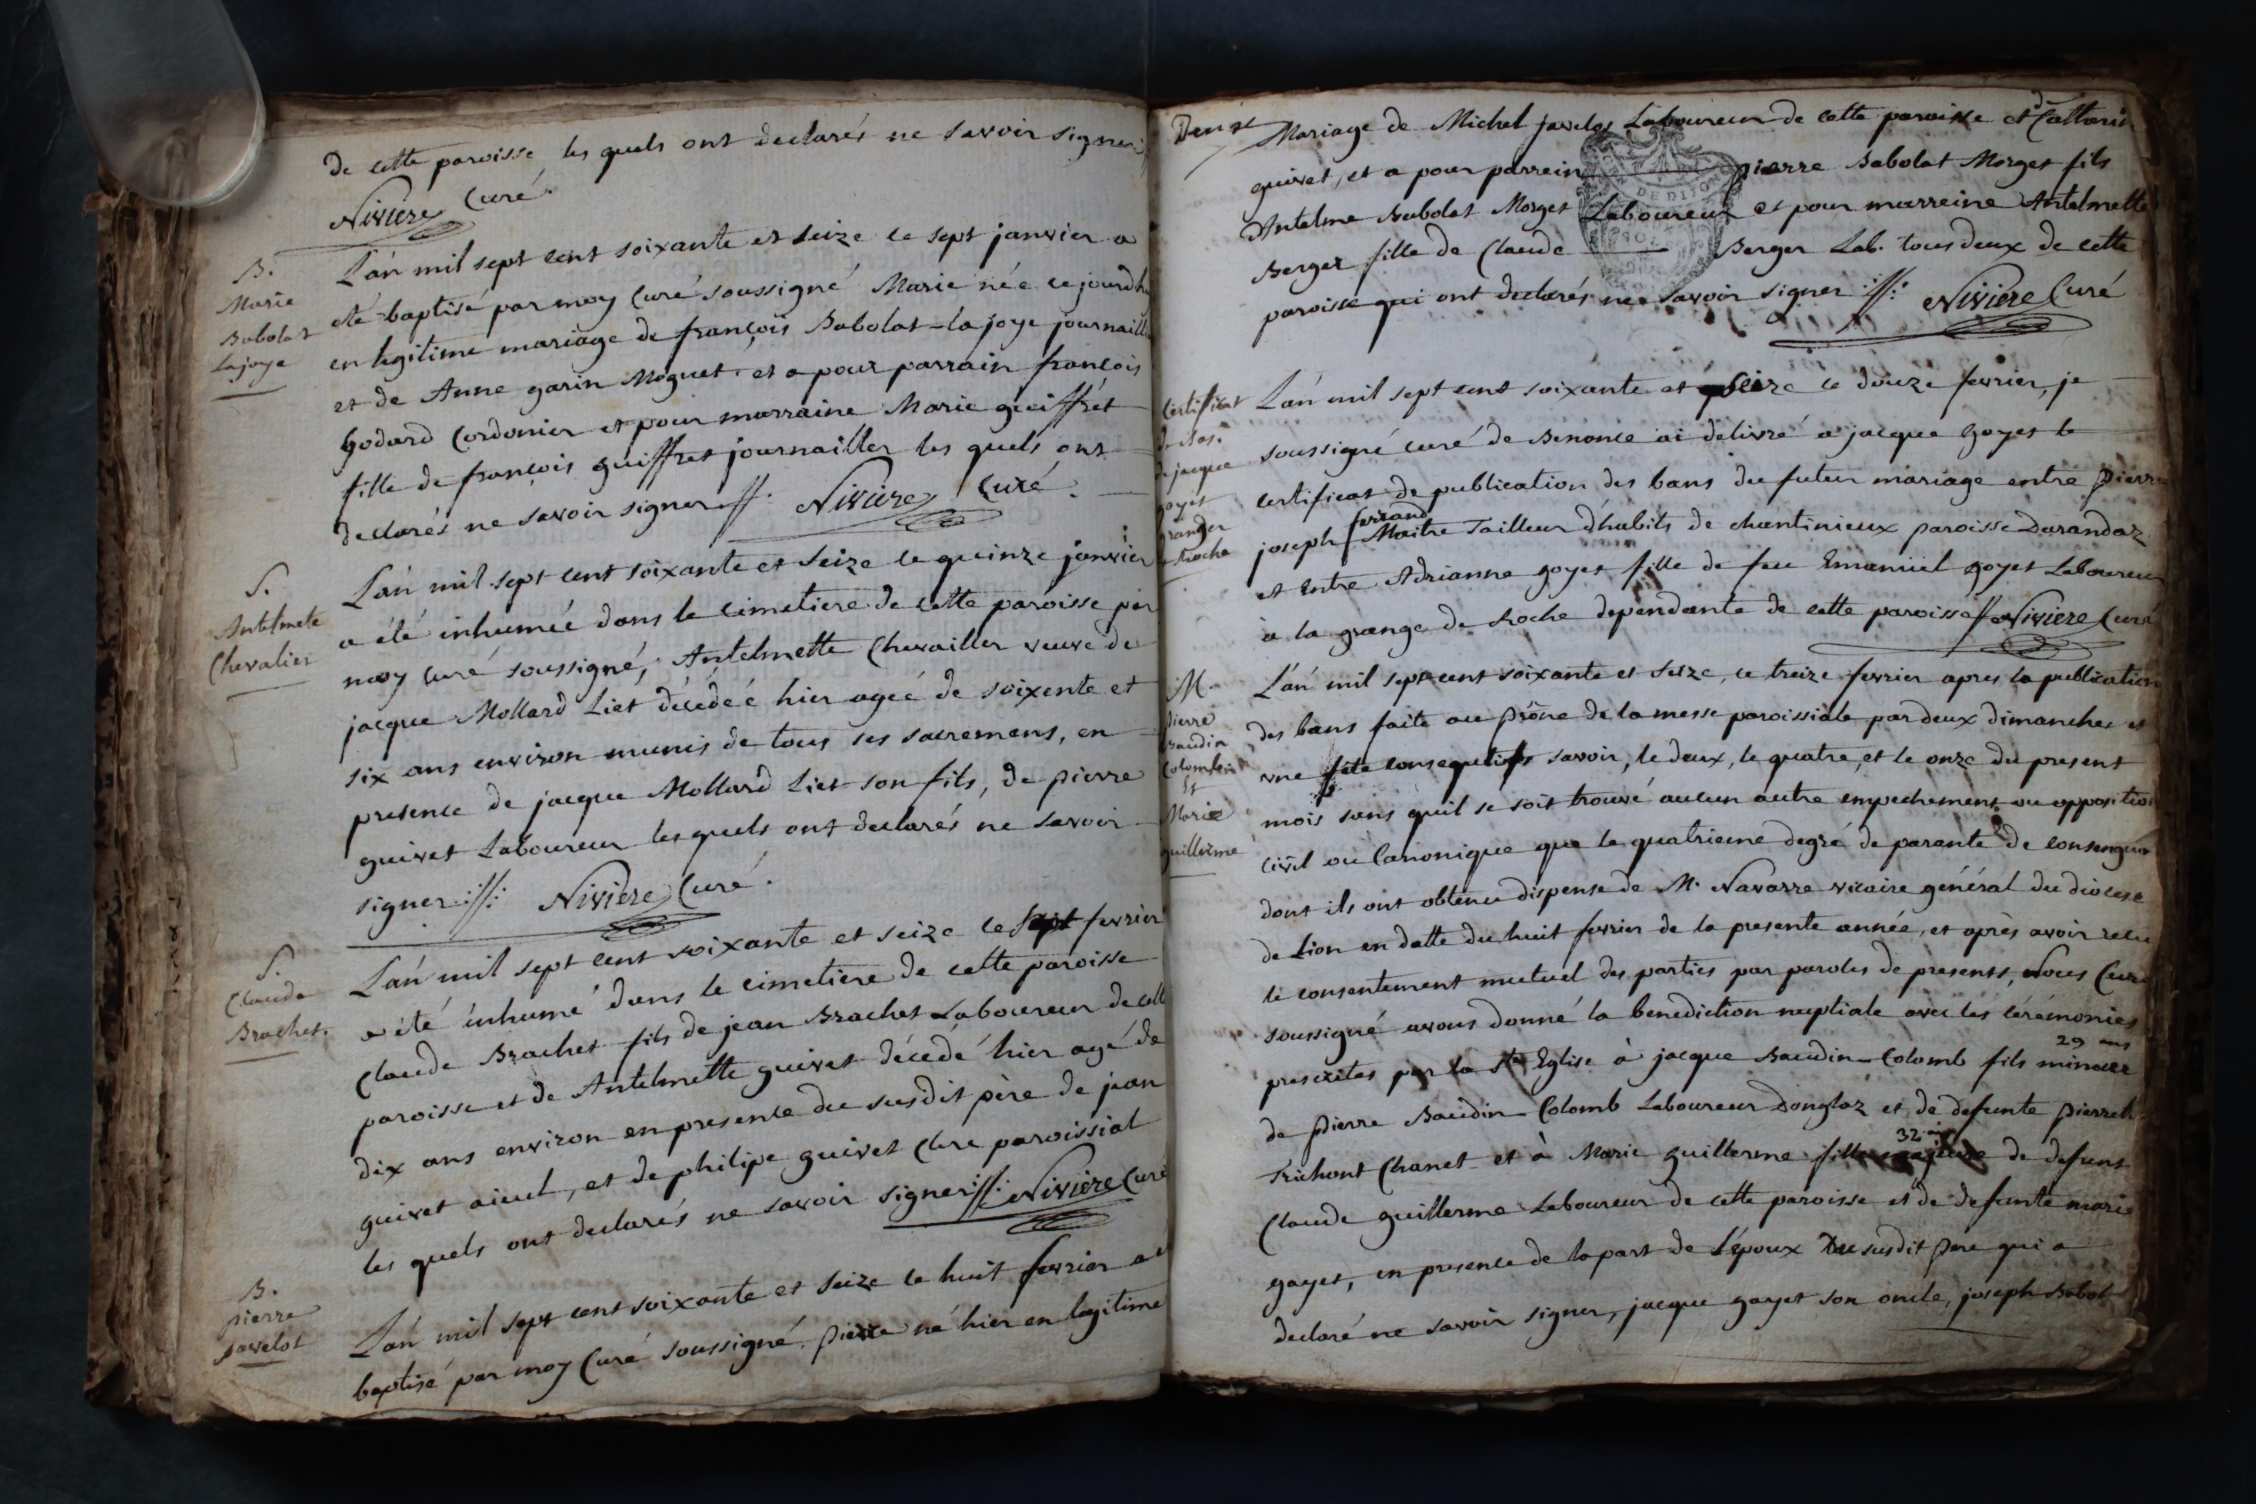 de cette paroisse les quels ont declarés ne savoir signer
Nivière Curé.
B.
Marie
Babolat
Lajoye
L'an mil sept cent soixante et seize le sept janvier a
eté baptisé par moy Curé soussigné Marie née ce jourdh
en legitime mariage de françois Babolat-lajoye journaill
et de Anne garin Moguet et a pour parrain françois
godard Cordonier et pour marraine Marie guiffret
fille de françois guiffret journaillier les quels ont
declarés ne savoir signer //. Nivière Curé.
S.
Antelmete
Chevalier
L'an mil sept cent soixante et seize le quinze janvier
a été inhumée dans le cimetiere de cette paroisse par
moy curé soussigné, Antelmette Chevailler veuve de
jacque Mollard Liet décédeé hier ageé de soixente et
six ans environ munis de tous ses sacremens, en
presence de jacque Mollard Liet son fils, de pierre
guivet Laboureur lesquels ont declarés ne savoir
signer ://: Nivière Curé.
S.
Claude
Brachet.
L'an mil sept cent soixante et seize le sept fevrier
a été inhumé dans le cimetiere de cette paroisse
Claude Brachet fils de jean Brachet Laboureur de cett
paroisse et de Antelmette guivet décedé hier agé de
dix ans environ en presence du susdit père de jean
guivet aieul, et de philipe guivet Clerc paroissial
les quels ont declarés ne savoir signer ://: Nivière Curé
B.
pierre
javelot
L'an mil sept cent soixante et seize le huit fevrier a é
baptisé par moy Curé soussigné pierre né hier en legitime
Mariage de Michel javelot Laboureur de cette paroisse et de Catharin
guivet, et a pour parrein pierre Babolat Morget fils
Antelme Babolat Morget Laboureur et pour marreine Antelmette
Berger fille de Claude Berger Lab. tous deux de cette
paroisse qui ont declarés ne savoir signer ://: Nivière Curé
Certificat
de jacque
goyet
granger
Roche
L'an mil sept cent soixante et seize le douze fevrier, je
soussigné curé de Benonce ai delivré a jacque goyet le
certificat de publication des bans du futur mariage entre pierre
joseph ferrand Maitre Tailleur d'habits de chantinieux paroisse Darandaz
et entre Adrianne goyet fille de feu Emanüel goyet Laboureur
à la grange de Roche dependante de cette paroisse // Nivière Curé
M.
pierre
Baudin
Colomb
et
Marie
guillerme
L'an mil sept cent soixante et seize, ce treize fevrier apres la publication
des bans faite au prône de la messe paroissiale par deux dimanches et
vne fete consequtifs savoir, le deux, le quatre, et le onze du present
mois sans qu'il se soit trouvé aucun autre empechement ou opposition
civil ou Canonique que le quatrieme degré de parante de consengui
dont ils ont obtenu dispense de M. Navarre vicaire général du diocese
de Lion en datte du huit fevrier de la presente année, et après avoir recu
le consentement mutuel des parties par paroles de presents, Nous Curé
soussigné avons donné la benediction nuptiale avec les cérémonies
prescrites par la Ste Eglise à jacque Baudin-Colomb fils mineur 29 ans
de pierre Baudin-Colomb Laboureur Dongloz et de defunte pierrett
Trichont Chanet et à Marie guillerme fille majeure 32 ans de defunt
Claude guillerme Laboureur de cette paroisse et de defunte marie
goyet, en presence de la part de l'époux Du susdit pere qui a
declaré ne savoir signer, jacque goyet son oncle, joseph Babol